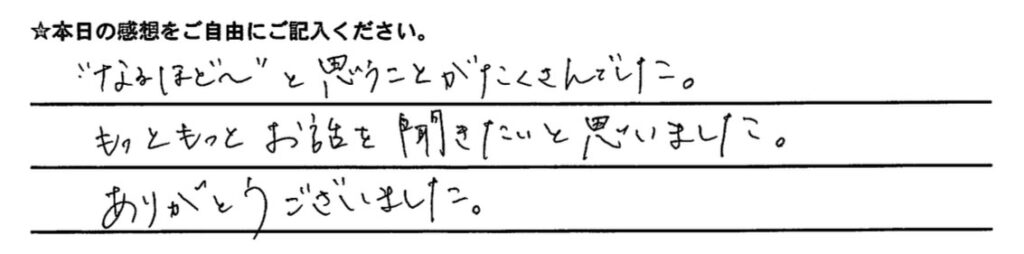 ☆本日の感想をご自由にご記入ください。
"なるほど〜"と思うことがたくさんでした。
もっともっとお話を聞きたいと思いました。
ありがとうございました。